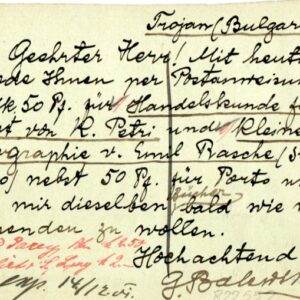 Trojan (Bulgar
Geehrter Herr! Mit heut
de Ihnen per Postanweisu
k 50 Pf. für Handelskunde
t von R. Petri und Kleine
ographie v. Emil Rasche /S
o/ nebst 50 Pf. für Porto u
Bücher
mir dieselben bald wie
enden zu wollen.
Hochachtend
14/12 01.